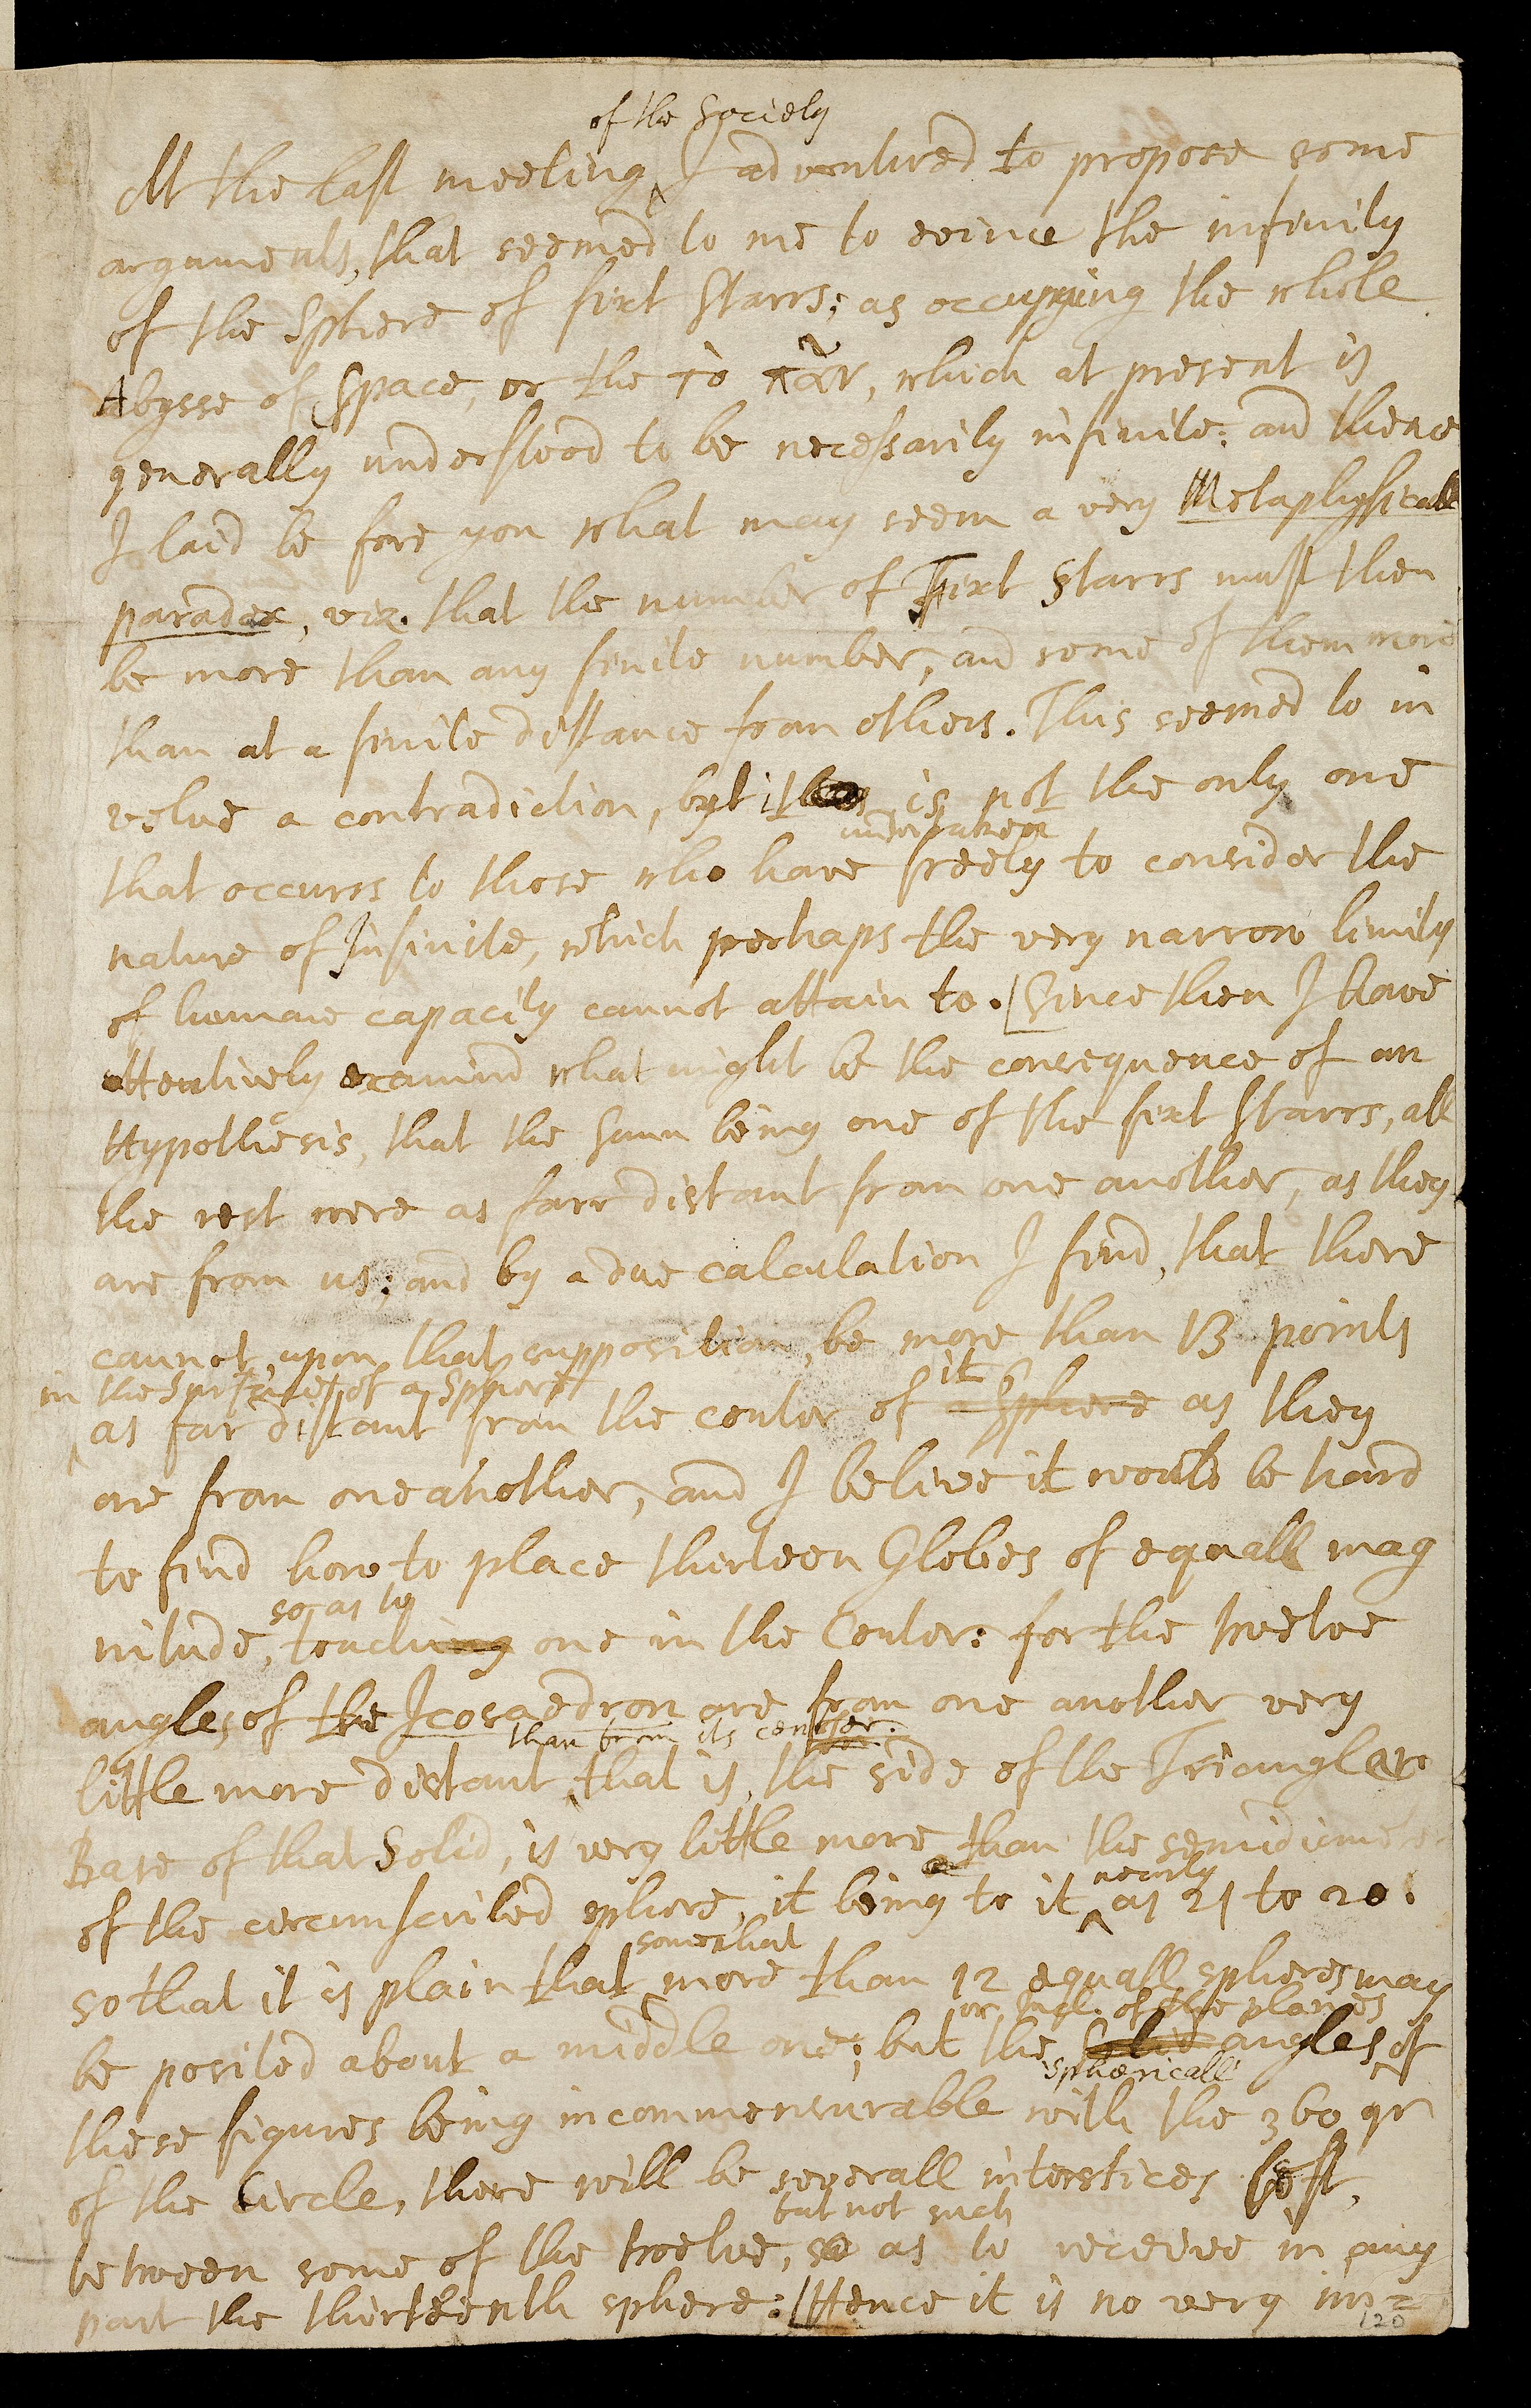 of the Society
At the last meeting I adventured to propose some
arguments, that seemed to me to evince the infinity
of the Sphere of fixt Starrs; as occupying the whole
Abysse of Space, or the τὸ πᾶν, which at present is
generally understood to be necessarily infinite: and thence
I laid be fore you what may seem a very Metaphysicall
paradox, viz. that the number of Fixt Starrs must then
be more than any finite number, and some of them more
than at a finite distance from others. This seemed to in
volve a contradiction, but it is not the only one
undertaken
that occurrs to those who have freely to consider the
nature of Infinite, which perhaps the very narrow limits
of humane capacity cannot attain to. [Since then I have
attentively examind what might be the consequence of an
Hypothesis, that the Sunn being one of the fixt Starrs, all
the rest were as farr distant from one another, as they
are from us; and by a due calculation I find, that there
cannot, upon that supposition, be more than 13 points
in the Surface of a Sphere it
as far distant from the center of a Sphere as they
are from one another, and I believe it would be hard
to find how to place thirteen Globes of equall mag
so as to
nitude, touching one in the Center: for the twelve
angles of the Icosaedron are from one another very
than from its center.
little more distant, that is, the side of the Triangular
Base of that Solid, is very little more than the semidiameter
nearly
of the circumscribed sphere, it being to it as 21 to 20.
somewhat
so that it is plain that more than 12 equall spheres may
of the planes
be posited about a middle one; but the Solid angles of
sphæricall
these figures being incommensurable with the 360 gr
of the Circle, there will be severall interstices left,
but not such
between some of the twelve, so as to receive in any
part the thirteenth sphere: [Hence it is no very im=
120